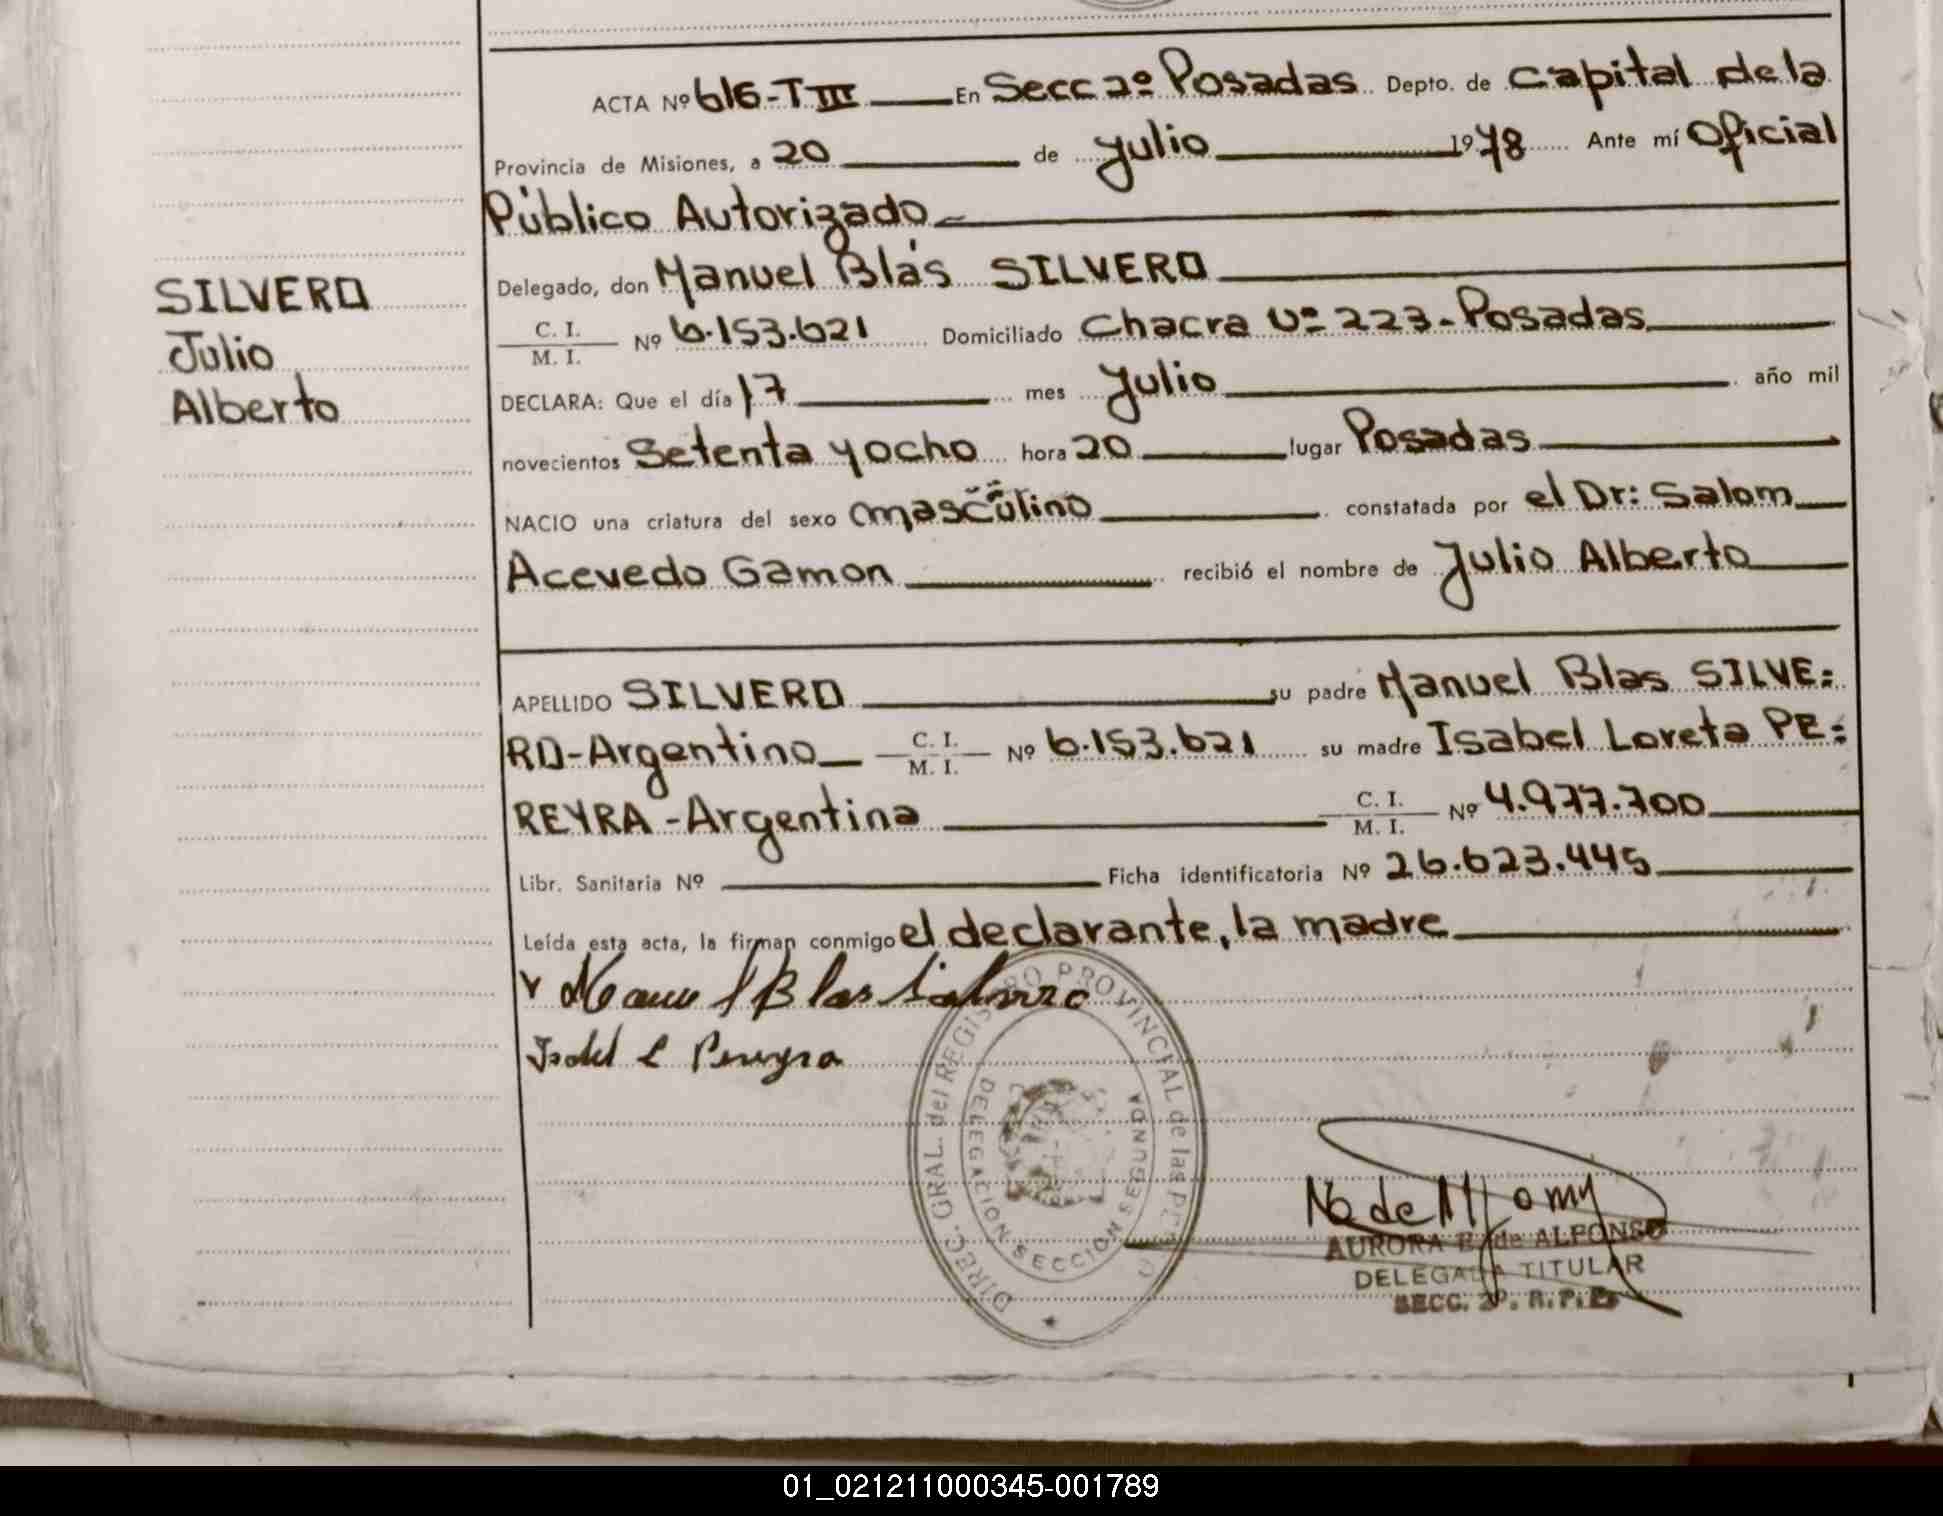 ACTA Nº 616-T III En Secc 2º Posadas Depto. de Capital de la
Provincia de Misiones, a 20 de Julio 1978 Ante mí Oficial
Público Autorizado
Delegado, don Manuel Blás SILVERO
C. I.
M. I.
Nº 6.153.621 Domiciliado Chacra Nº 223-Posadas
DECLARA: Que el día 17 mes Julio año mil
novecientos Setenta y ocho hora 20 lugar Posadas
NACIO una criatura del sexo masculino constatada por el Dr: Salom
Acevedo Gamon recibió el nombre de Julio Alberto
SILVERO
Julio
Alberto
APELLIDO SILVERO su padre Manuel Blas SILVE=
RO-Argentino C. I. M. I. Nº 6.153.621 su madre Isabel Loreta PE=
REYRA-Argentina C. I. M. I. Nº 4.977.700
Libr. Sanitaria Nº Ficha identificatoria Nº 26.623.445
Leída esta acta, la firman conmigo el declarante, la madre
Manuel Blas Silvero
Isabel L Pereyra
DIREC. GRAL. del REGISTRO PROVINCIAL de las
DELEGACION SECCION SEGUNDA
AURORA de ALFONSO
DELEGADA TITULAR
SECC. 2ª. R. P. P.
01_021211000345-001789